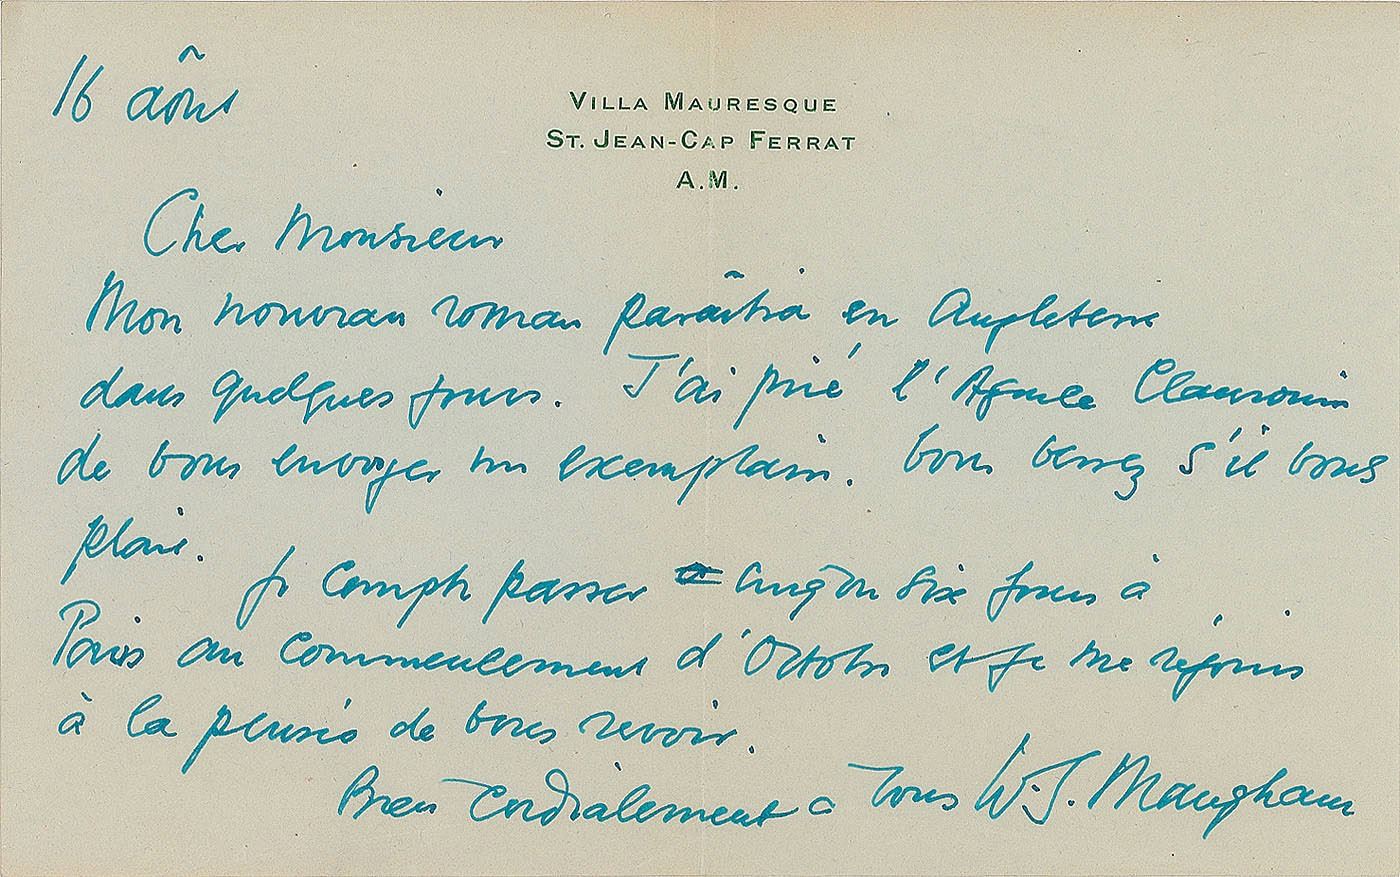 16 août
VILLA MAURESQUE
ST. JEAN-CAP FERRAT
A.M.
Cher Monsieur
Mon nouveau roman paraîtra en Angleterre
dans quelques jours. J'ai prié l'Agence Clairouin
de vous envoyer un exemplaire. Vous verrez s'il vous
plait.
Je compte passer cinq ou six jours à
Paris au commencement d'Octobre et je me réjouis
à la pensée de vous revoir.
Bien cordialement à vous W.S. Maugham